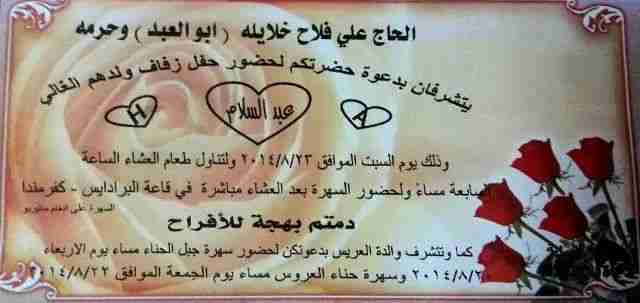 الحاج علي فلاح خلايله ( ابو العبد ) وحرمه
يتشرفان بدعوة حضرتكم لحضور حفل زفاف ولدهم الغالي
A عبد السلام H
وذلك يوم السبت الموافق ٢٠١٤/٨/٢٣ ولتناول طعام العشاء الساعة
السابعة مساءً ولحضور السهرة بعد العشاء مباشرة في قاعة البرادايس - كفرمندا
السهرة على انغام ستيريو
دمتم بهجة للأفراح
كما وتتشرف والدة العريس بدعوتكن لحضور سهرة جبل الحناء مساء يوم الاربعاء
٢٠١٤/٨/٢٠ وسهرة حناء العروس مساء يوم الجمعة الموافق ٢٠١٤/٨/٢٢